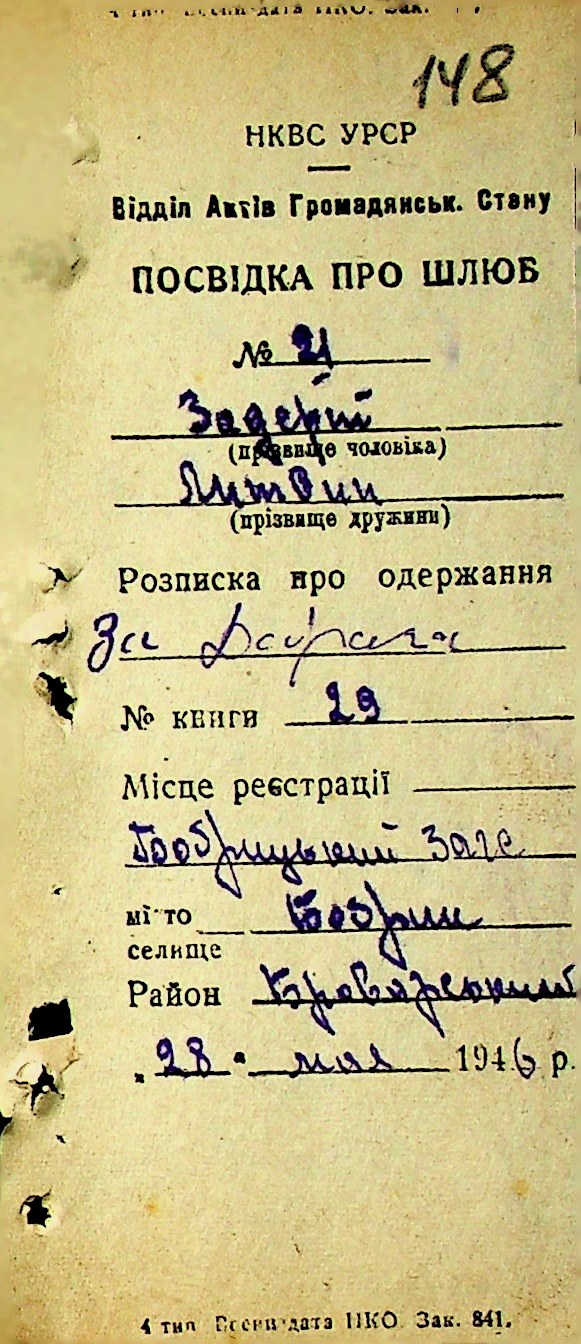 148
НКВС УРСР
Відділ Актів Громадянськ. Стану
ПОСВІДКА ПРО ШЛЮБ
№ 21
Задерій
(прізвище чоловіка)
Литвин
(прізвище дружини)
Розписка про одержання
За
№ книги 29
Місце реєстрації
Бобрицький Загс
місто
селище
Бобрик
Район Броварський
„28" мая 1946 р.
4 тип. Воениздата НКО. Зак. 841.